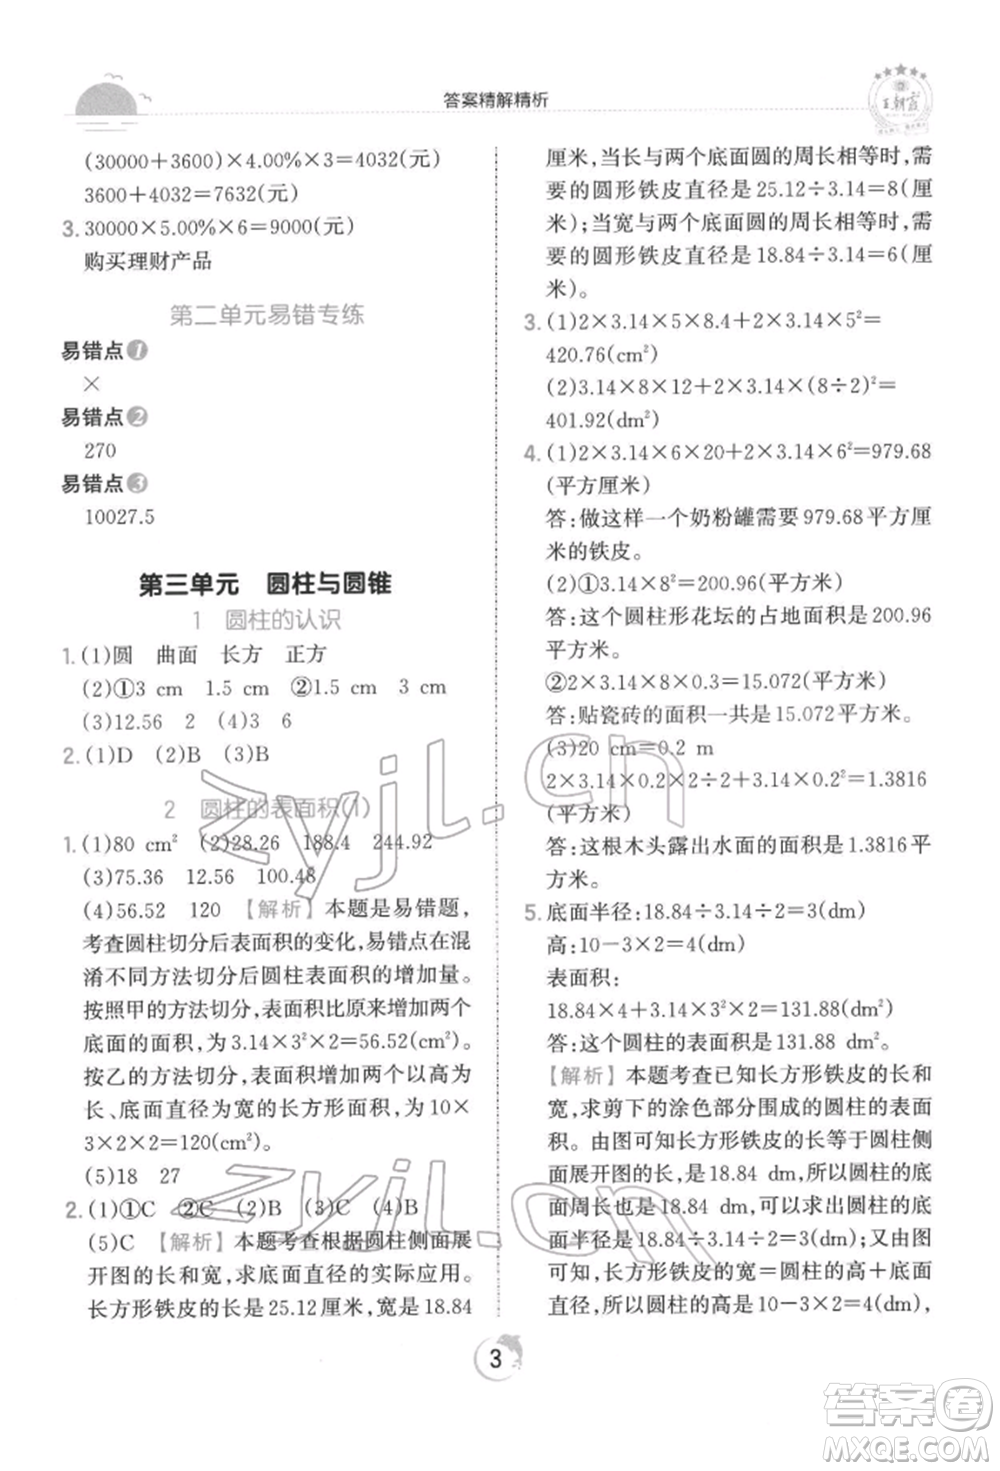 答案精解精析
王朝霞
(30000+3600)×4.00%×3=4032(元)
3600+4032=7632(元)
3. 30000×5.00%×6=9000(元)
购买理财产品
第二单元易错专练
易错点1
×
易错点2
270
易错点3
10027.5
第三单元 圆柱与圆锥
1 圆柱的认识
1. (1)圆 曲面 长方 正方
(2)①3 cm 1.5 cm ②1.5 cm 3 cm
(3)12.56 2 (4)3 6
2. (1)D (2)B (3)B
2 圆柱的表面积(1)
1. (1)80 cm² (2)28.26 188.4 244.92
(3)75.36 12.56 100.48
(4)56.52 120 【解析】本题是易错题,
考查圆柱切分后表面积的变化,易错点在混
淆不同方法切分后圆柱表面积的增加量。
按照甲的方法切分,表面积比原来增加两个
底面的面积,为3.14×3²×2=56.52(cm²)
按乙的方法切分,表面积增加两个以高为
长、底面直径为宽的长方形面积,为10×
3×2×2=120(cm²)。
(5)18 27
2. (1)①C ②C (2)B (3)C (4)B
(5)C 【解析】本题考查根据圆柱侧面展
开图的长和宽,求底面直径的实际应用。
长方形铁皮的长是25.12厘米,宽是18.84
厘米,当长与两个底面圆的周长相等时,需
要的圆形铁皮直径是25.12÷3.14=8(厘
米);当宽与两个底面圆的周长相等时,需
要的圆形铁皮直径是18.84÷3.14=6(厘
米)。
3. (1)2×3.14×5×8.4+2×3.14×5²=
420.76(cm²)
(2)3.14×8×12+2×3.14×(8÷2)²=
401.92(dm²)
4. (1)2×3.14×6×20+2×3.14×6²=979.68
(平方厘米)
答:做这样一个奶粉罐需要979.68平方厘
米的铁皮。
(2)①3.14×8²=200.96(平方米)
答:这个圆柱形花坛的占地面积是200.96
平方米。
②2×3.14×8×0.3=15.072(平方米)
答:贴瓷砖的面积一共是15.072平方米。
(3)20 cm=0.2 m
2×3.14×0.2×2÷2+3.14×0.2²=1.3816
(平方米)
答:这根木头露出水面的面积是1.3816平
方米。
5. 底面半径:18.84÷3.14÷2=3(dm)
高:10-3×2=4(dm)
表面积:
18.84×4+3.14×3²×2=131.88(dm²)
答:这个圆柱的表面积是131.88 dm²。
【解析】本题考查已知长方形铁皮的长和
宽,求剪下的涂色部分围成的圆柱的表面
积。由图可知长方形铁皮的长等于圆柱侧
面展开图的长,是18.84 dm,所以圆柱的底
面周长也是18.84 dm,可以求出圆柱的底
面半径是18.84÷3.14÷2=3(dm);又由图
可知,长方形铁皮的宽=圆柱的高+底面
直径,所以圆柱的高是10-3×2=4(dm),
3
zyjl.cn
zyjl.cn
答案圈
MXQE.COM